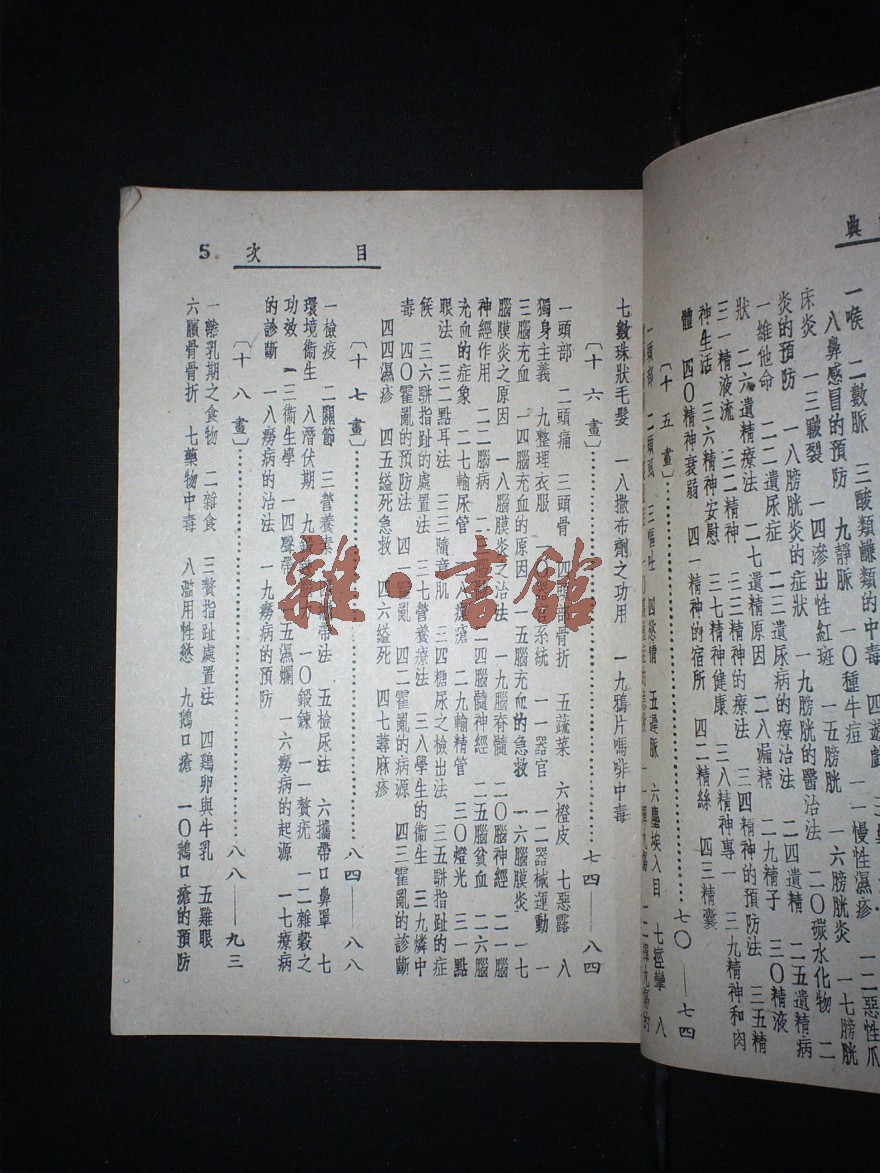 典
一喉 二數脈 三酸類鹼類的中毒 四遊戲
八鼻感冒的預防 九靜脈 一〇種牛痘 一一慢性濕疹 一二惡性爪
床炎 一三皸裂 一四滲出性紅斑 一五膀胱 一六膀胱炎 一七膀胱
炎的預防 一八膀胱炎的症狀 一九膀胱的醫治法 二〇碳水化物 二
一維他命 二二遺尿症 二三遺尿病的療治法 二四遺精 二五遺精病
狀 二六遺精療法 二七遺精原因 二八漏精 二九精子 三〇精液
三一精液流 三二精神 三三精神的療法 三四精神的預防法 三五精
神生活 三六精神安慰 三七精神健康 三八精神專一 三九精神和肉
體 四〇精神衰弱 四一精神的宿所 四二精絲 四三精囊
〔十五畫〕……七〇——七四
四慾情 五遲脈 六塵埃入目 七痙攣 八
目次 5
七數珠狀毛髮 一八撒布劑之功用 一九鴉片嗎啡中毒
〔十六畫〕……七四——八四
一頭部 二頭痛 三頭骨 四部骨折 五蔬菜 六橙皮 七惡露 八
獨身主義 九整理衣服 〇系統 一一器官 一二器械運動 一
三腦充血 一四腦充血的原因 一五腦充血的急救 一六腦膜炎 一七
腦膜炎之原因 一八腦膜炎之治法 一九腦脊髓 二〇腦神經 二一腦
神經作用 二二腦病 二四腦髓神經 二五腦貧血 二六腦
充血的症象 二七輸尿管 瘡 二九輸精管 三〇燈光 三一點
眼法 三二點耳法 三三隨意肌 三四糖尿之檢出法 三五駢指趾的症
候 三六駢指趾的處置法 三七營養療法 三八學生的衞生 三九燐中
毒 四〇霍亂的預防法 四一霍亂 四二霍亂的病源 四三霍亂的診斷
四四濕疹 四五縊死急救 四六縊死 四七蕁麻疹
〔十七畫〕……八四——八八
一檢疫 二關節 三營養素 帶法 五檢尿法 六攜帶口鼻罩 七
環境衞生 八潛伏期 九 一〇鍛鍊 一一贅疣 一二雜穀之
功效 一三衞生學 一四聲帶 五濕爛 一六癆病的起源 一七療病
的診斷 一八癆病的治法 一九癆病的預防
〔十八畫〕……八八——九三
一離乳期之食物 二雜食 三贅指趾處置法 四鷄卵與牛乳 五雞眼
六顴骨骨折 七藥物中毒 八濫用性慾 九鵝口瘡 一〇鵝口瘡的預防
雜·書館